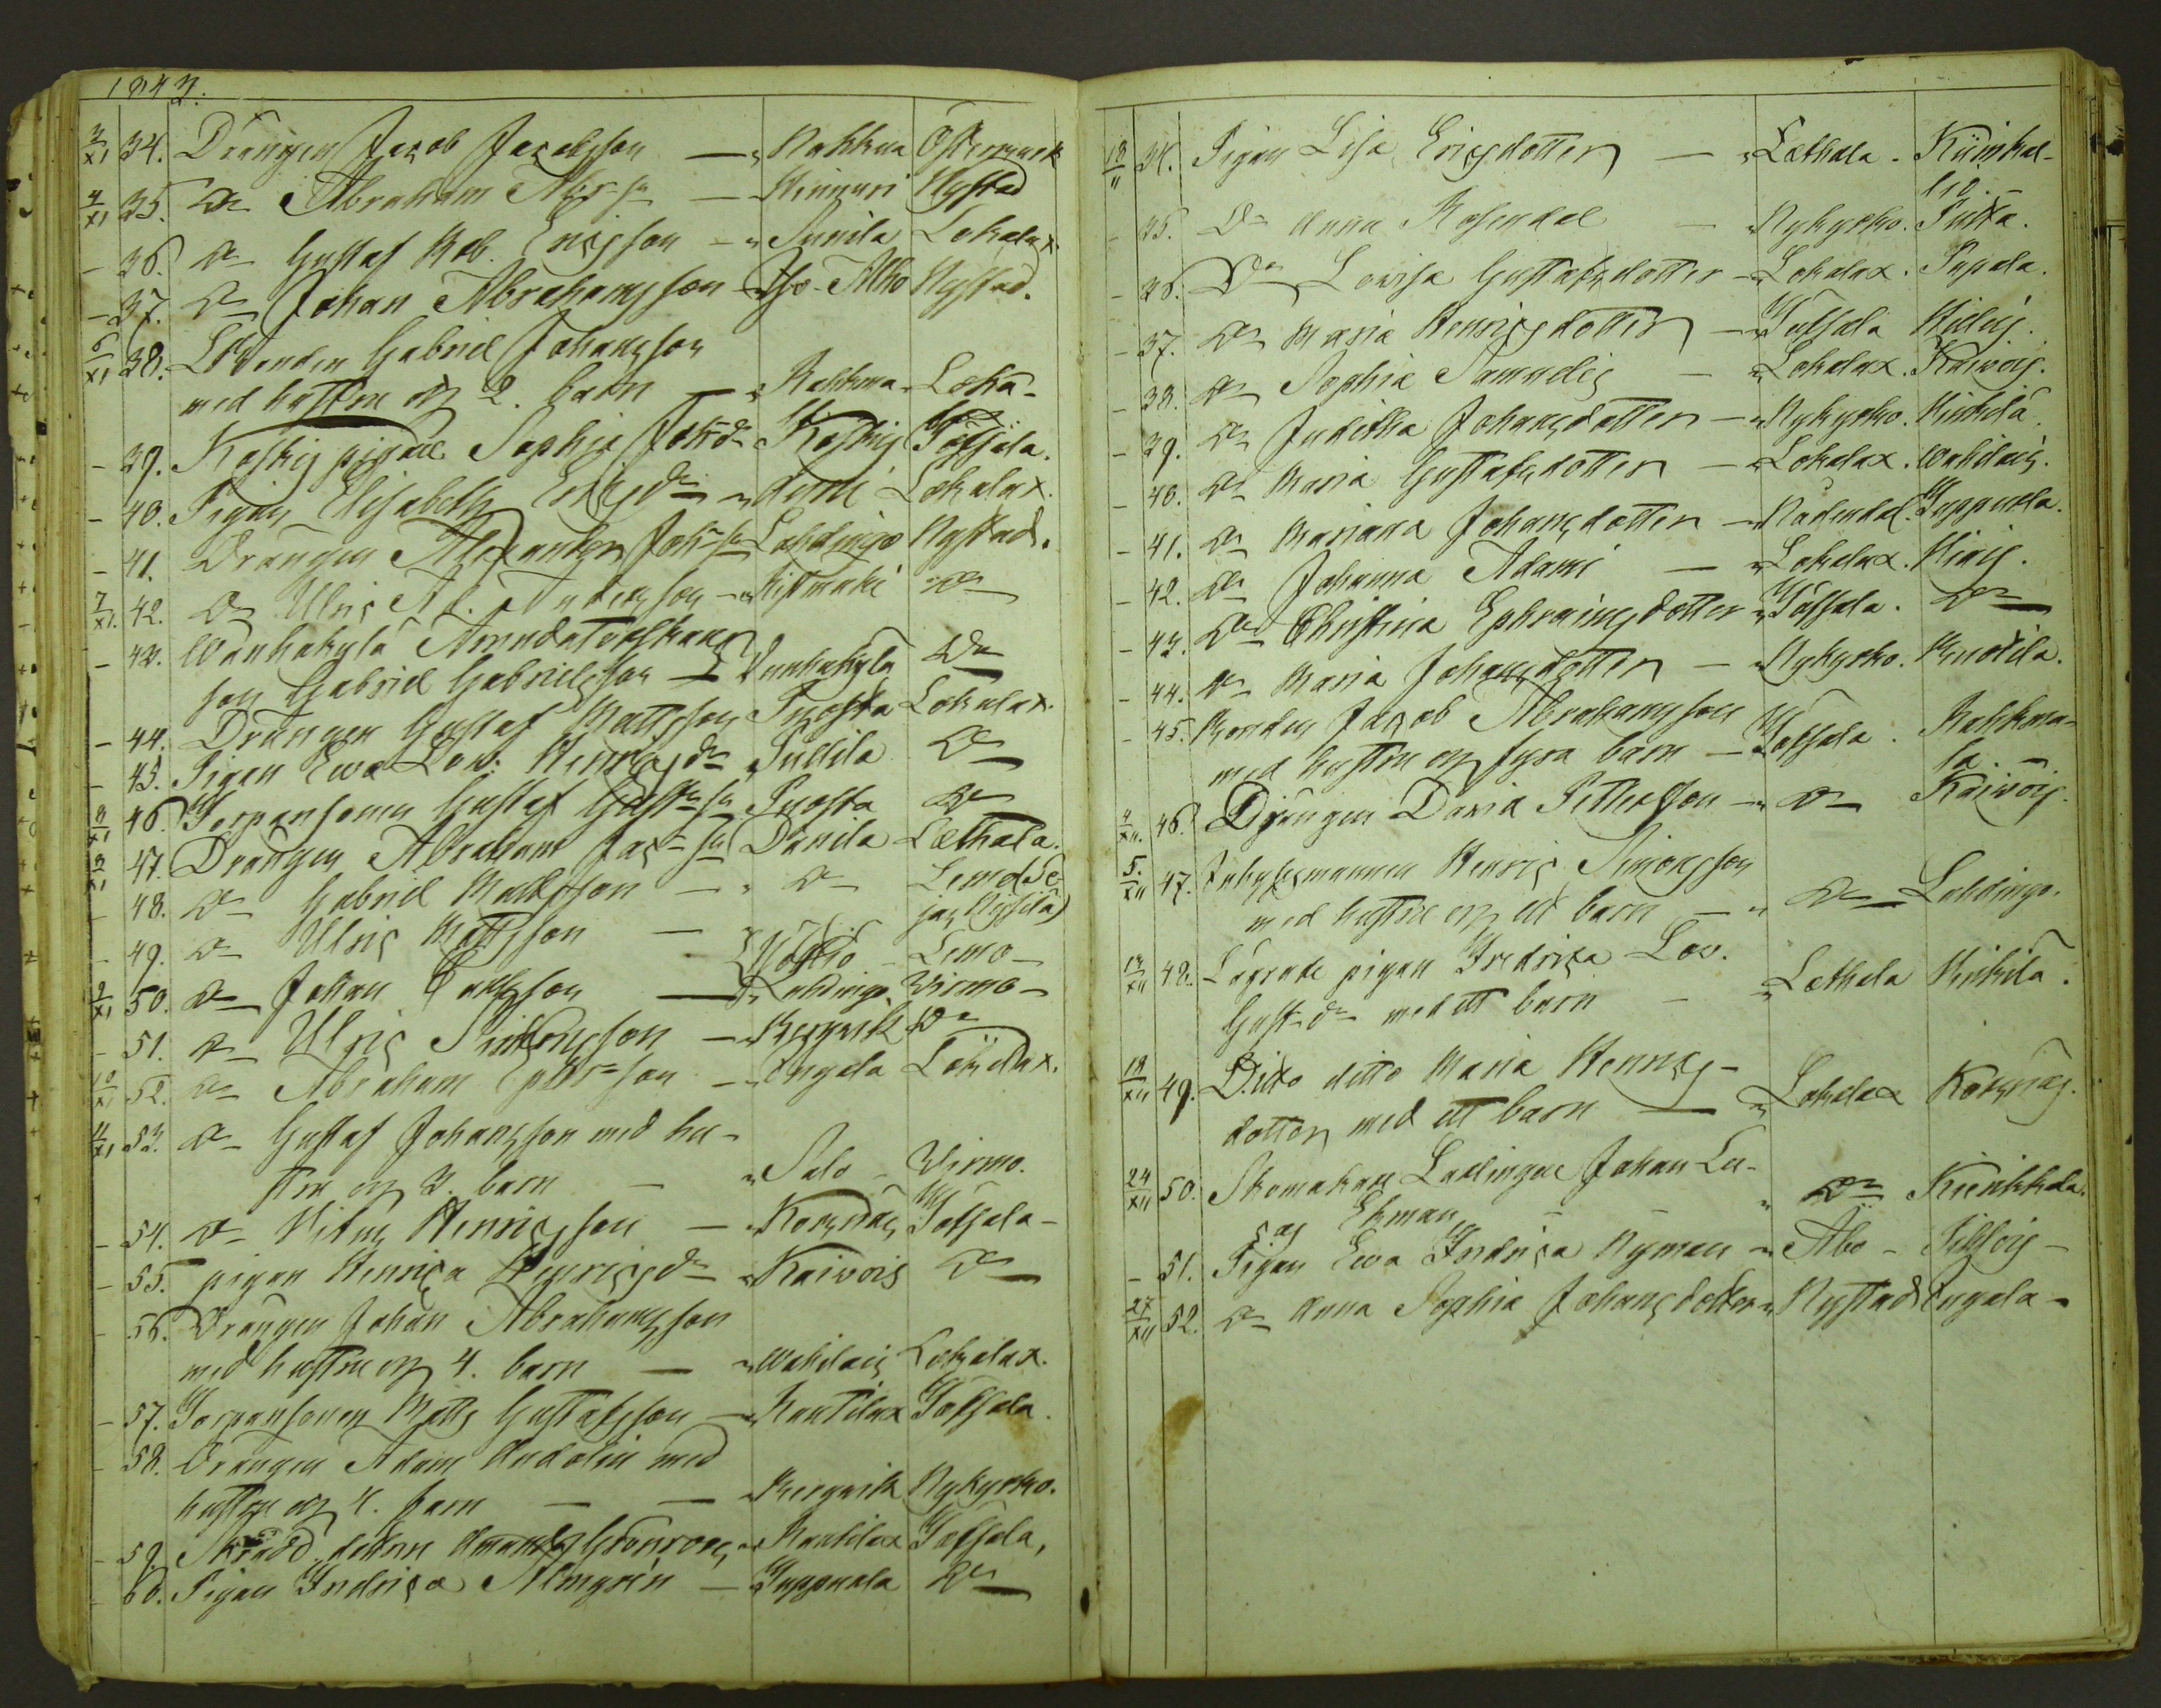 1843.
3/XI 34. Drängen Jacob Jacobsson — " Rahkua Östermark
4/XI 35. Do Abraham Abr-sn — Kinnuri Nystad
- 36. Do Gustaf Rob. Ericsson — " Sunila Lokalax.
- 37. Do Johan Abrahamsson Iso-Alho Nystad.
6/XI 38. Gabriel Johansson
med hustru och 2. barn — " Rahkma- Loka-
- 39. Koskis pigan Sophia Joh-dr Koskis Töfsala.
- 40. Pigan Elisabeth Ericsdr " Lokalax.
- 41. Drängen Alexander Joh-sn Lahdingo Nystad.
7/XI. 42. Do Ulric Ad. Andersson — " Ristimäki Do
- 43. Wanhakylä
son Gabriel Gabrielsson — Vanhakylä Do
- 44. Drängen Gustaf Mattsson Puosta Lokalax.
- 45. Pigan Ewa Lov. Henricsdr Pullila Do
8/XI 46. Torparsonen Gustaf Gust-sn Puosta Do
9/XI 47. Drängen Abraham Jac-sn Danila Lethala.
- 48. Do Gabriel Mattsson — " Do Lemo (Se
- 49. Do Ulric Mattsson — Lemo —
9/XI 50. Do Johan — " Lahdingo Wirmo —
- 51. Do Ulric — " Bergvik Do
10/XI 52. Do Abraham Ephr-son — " Engela Lokalax.
11/XI 53. Do Gustaf Johansson med hu-
stru och 2. barn — " Salo — Wirmo.
- 54. Do Vilm Henricsson — " Korsnäs Töfsala —
- 55. pigan Henrica Henricsdr " Kaivois Do
- 56. Drängen Johan Abrahamsson
med hustru och 4. barn — " Wahilais Lokalax.
- 57. Torparsonen Matts Gustafsson — " Rautilax Töfsala.
- 58. Drängen Adam Andelin med
hustru och 4. barn — — " Bergvik Nykyrko.
- 59. Grönroos " Rautilax Töfsala,
- 60. Pigan Fredrica Almgrén — Tuppuala Do
18/11 34. Pigan Lisa Ericsdotter — " Lethala. Kiimkal-
lio.
- 35. Do Anna Rosendal — Nykyrko. Putta.
- 36. Do Lovisa Gustafsdotter — " Lokalax. Papala.
- 37. Do Maria Henricsdotter — " Töfsala
- 38. Do Sophia Samuelis — " Lokalax. Kaivois.
- 39. Do Juditha Johansdotter — " Nykyrko. Kukila.
- 40. Do Maria Gustafsdotter — " Lokalax. Wahilais.
- 41. Do Mariana Johansdotter — " Nådendal. Tuppuala.
- 42. Do Johanna Adami — " Lokalax. Hiris.
- 43. Do Christina Ephraimsdotter " Töfsala. Do
- 44. Do Maria Johansdotter — " Nykyrko. Knutila.
- 45. Bonden Jacob Abrahamsson
med hustru och fyra barn — Töfsala. Rahkma-
la.
4/XII. 46. Drängen David Pettersson — " Do Kaivois.
5./XII 47. Inhysesmannen Henric Simonsson
med hustru och ett barn — " Do Lahdingo.
14/XII 48. Lägrade pigan Fredrica Lov.
Gust-dr med ett barn — " Lethala Kukila.
18/XII 49. Ditto ditto Maria Henrics-
dotter med ett barn — " Lokalax Korsnäs.
24/XII 50. Skomakare Lärlingen Johan
Ekman " Do Kiinkkala.
- 51. Pigan Ewa Fredrica Nyman — " Åbo —
27/XII 52. Do Anna Sophia Johansdotter " Nystad Engela —